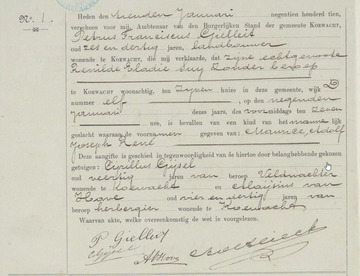 No. 1.
Heden den tienden Januari negentien honderd tien,
verschenen voor mij, Ambtenaar van den Burgerlijken Stand der gemeente KOEWACHT,
Petrus Franciscus Gielleit
oud zes en dertig jaren, landbouwer
wonende te KOEWACHT, die mij verklaarde, dat zijne echtgenoote
Renilde Eladie Buy zonder beroep
te KOEWACHT woonachtig, ten zijnen huize in deze gemeente, wijk D
nummer elf, op den negenden
Januari dezes jaars, des middags ten zeven
ure, is bevallen van een kind van het mannelijk
geslacht waaraan de voornamen gegeven van: Maurice, Adolf
Joseph René
Deze aangifte is geschied in tegenwoordigheid van de hiertoe door belanghebbende gekozen
getuigen: Cyrillus Gijsel
oud veertig jaren van beroep Veldwachter
wonende te Koewacht en Aloijsius van
Hove oud vier en dertig jaren van
beroep herbergier wonende te Koewacht
Waarvan akte, welke overeenkomstig de wet is voorgelezen.
P Gielleit
CGijsel